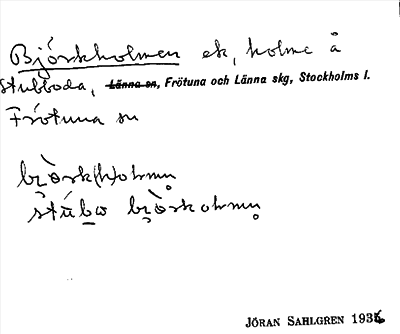 Björkholmen ek, holme å
Stubboda, Länna sn, Frötuna och Länna skg, Stockholms l.
Frötuna sn
björk(h)olmn̥
stúbω björkolmn̥
JÖRAN SAHLGREN 1936